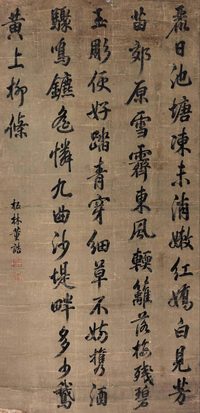 麗日池塘凍未消嫩紅嬌白見芳
苗郊原雪霽東風輭籬落梅殘碧
玉彫便好踏青穿細草不妨攜酒
驟鳴鑣憐九曲沙堤畔多少鵞
黃上柳條
柘林董誥